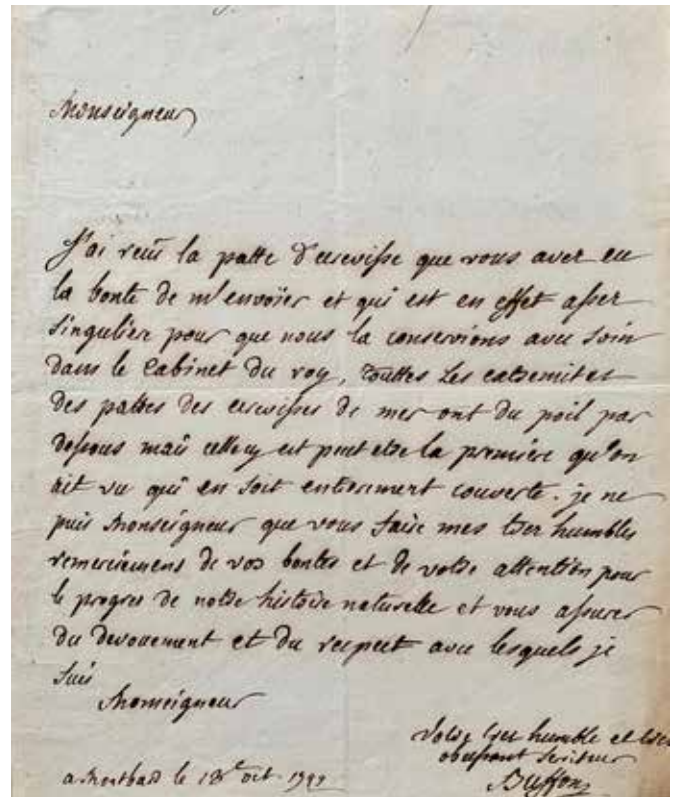 Monseigneur
J'ai reçu la patte d'ecrevisse que vous avez eu
la bonté de m'envoïer et qui est en effet assez
singuliere pour que nous la conservions avec soin
dans le Cabinet du roy, touttes les extremités
des pattes des ecrevisses de mer ont du poil par
dessous mais cellecy est peut etre la premiere qu'on
ait vu qui en soit entierement couverte. je ne
puis Monseigneur que vous faire mes tres humbles
remerciemens de vos bontés et de votre attention pour
le progres de notre histoire naturelle et vous assurer
du devouement et du respect avec lesquels je
suis
Monseigneur
Votre tres humble et tres
obeissant serviteur
Buffon
a Montbard le 18e oct.